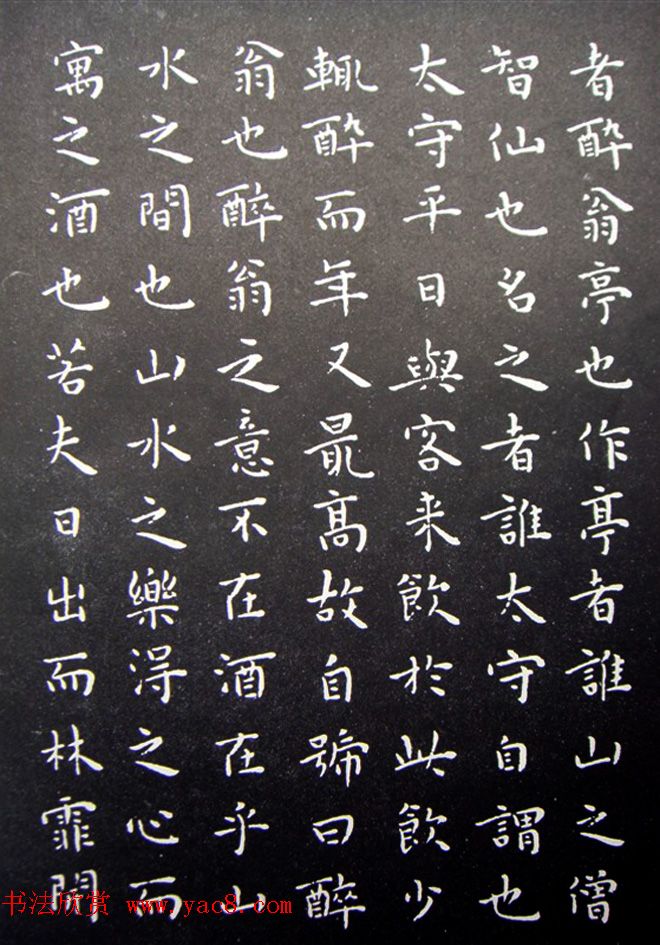 者醉翁亭也作亭者誰山之僧
智仙也名之者誰太守自謂也
太守平日與客来飲於此飲少
輒醉而年又最高故自號曰醉
翁也醉翁之意不在酒在乎山
水之間也山水之樂淂之心而
寓之酒也若夫日出而林霏開
书法欣赏 www.yac8.com